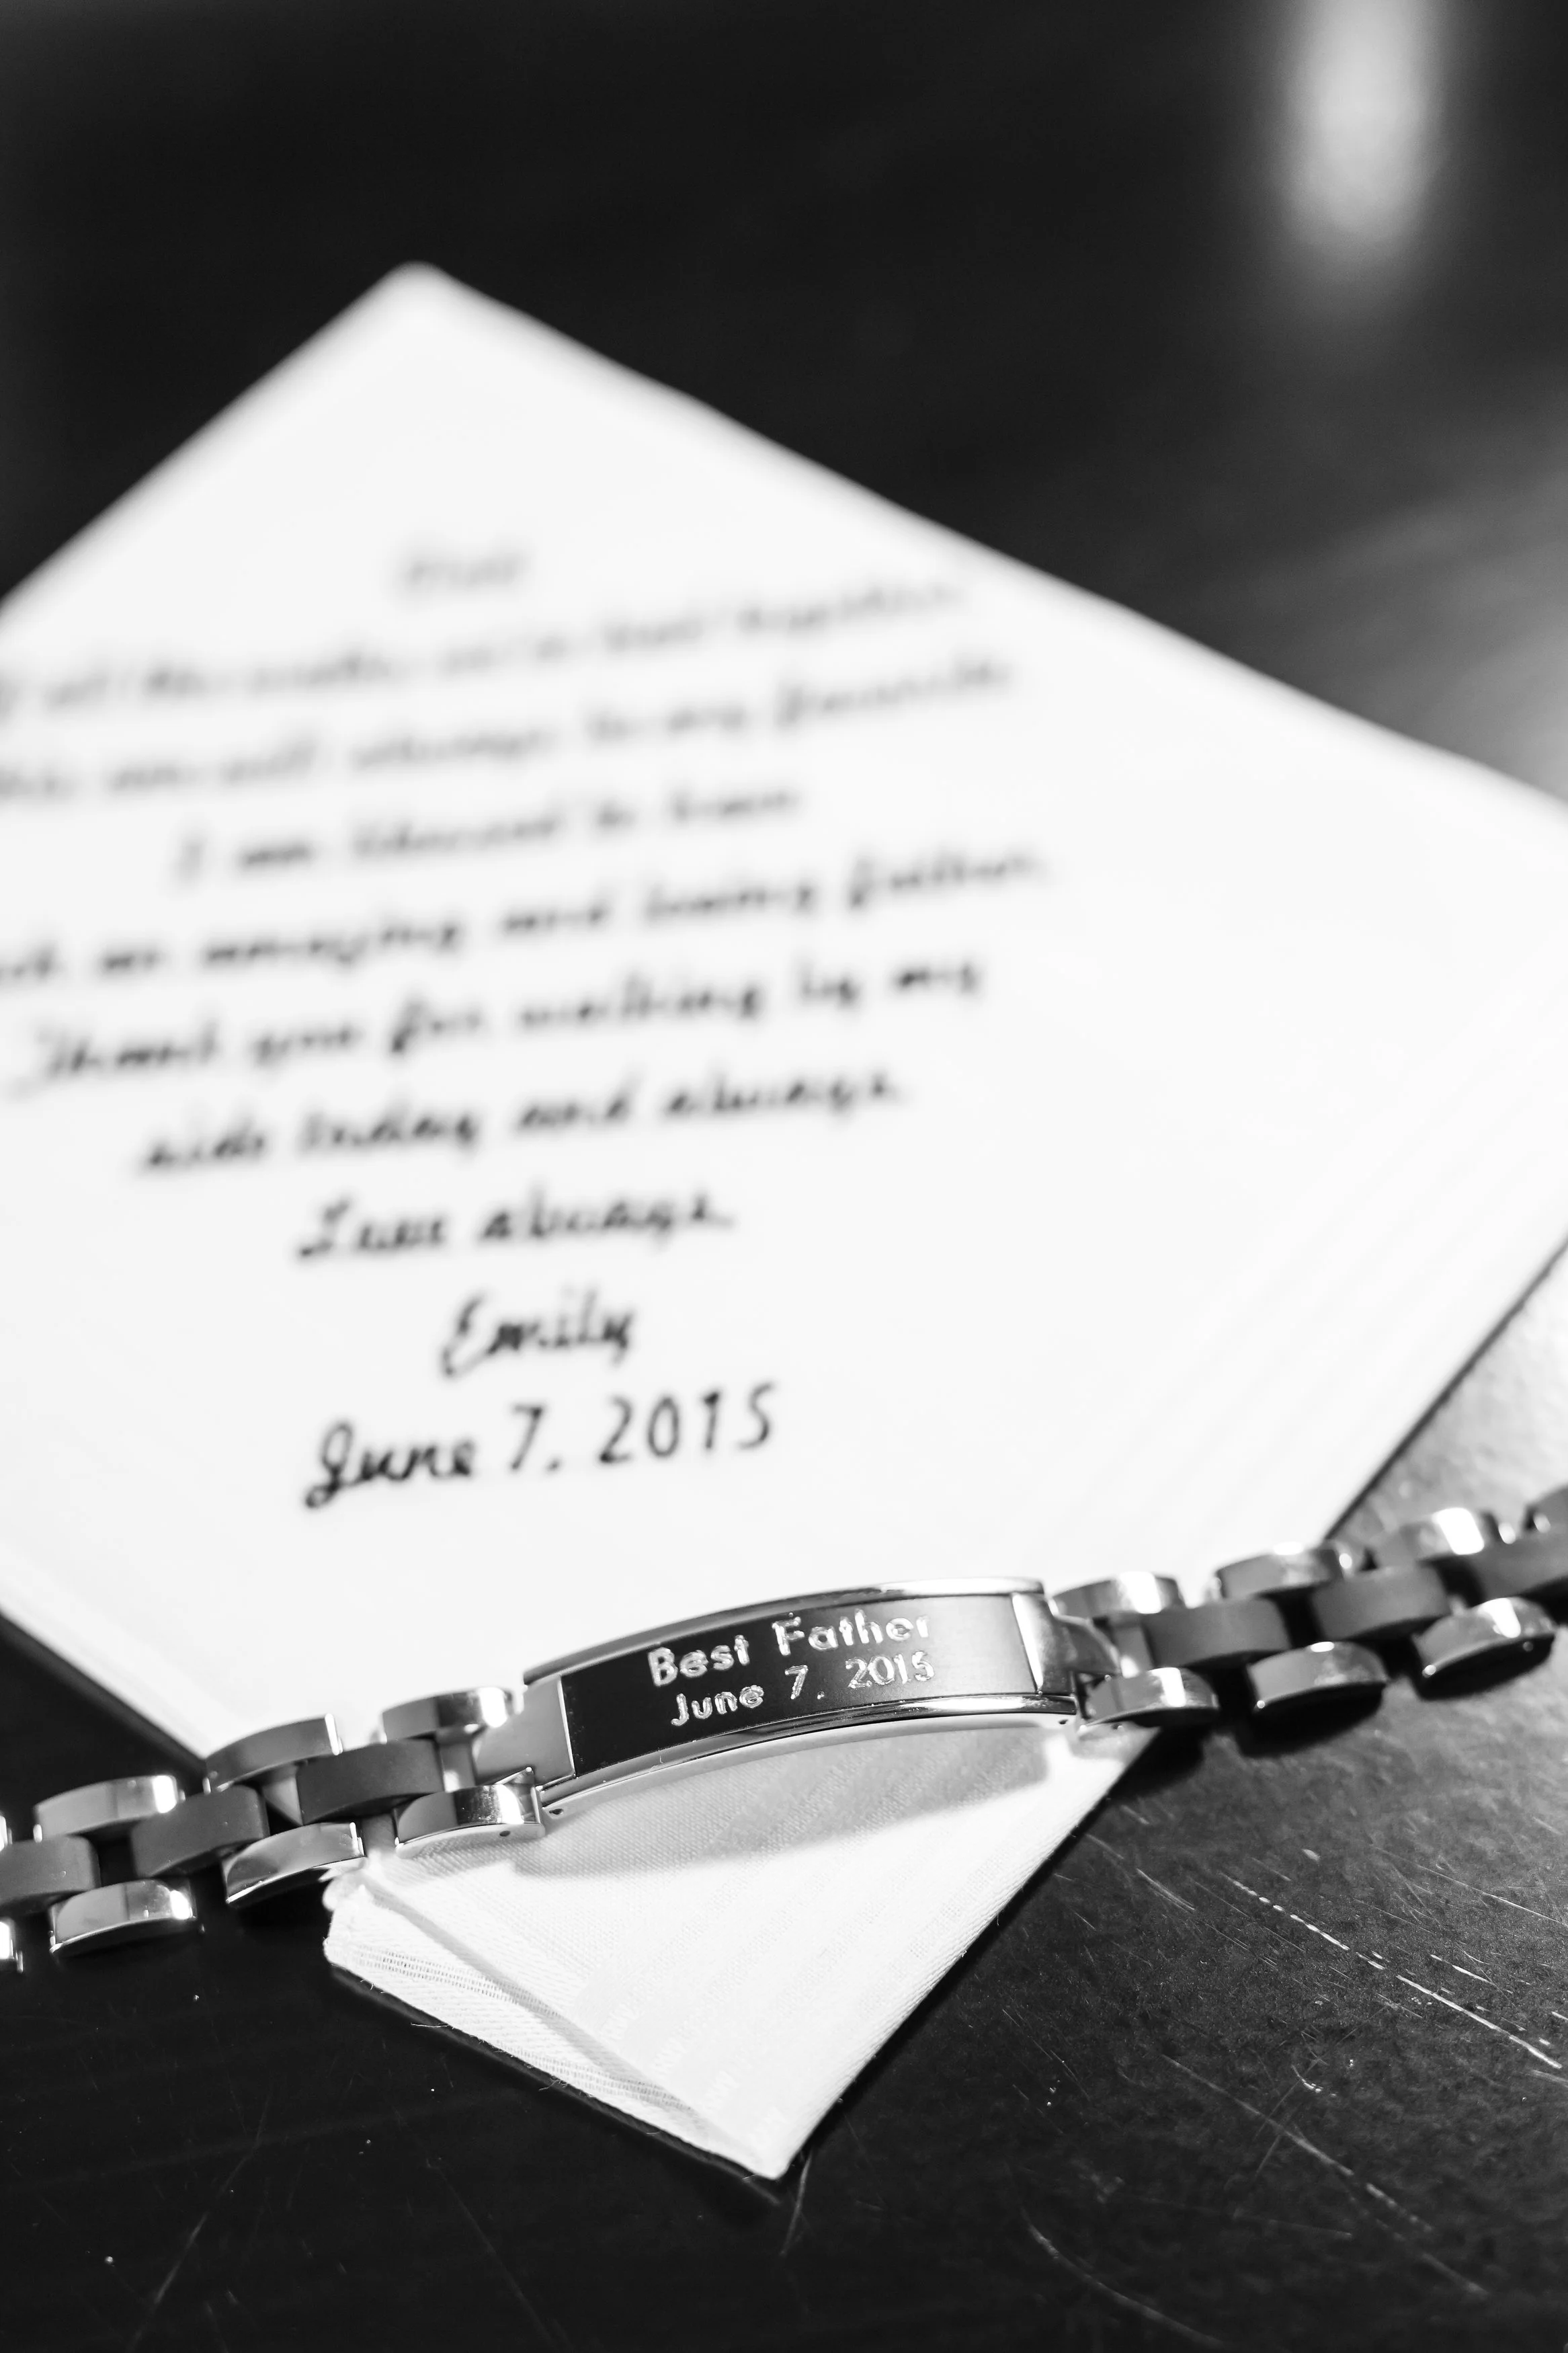 Dad
of all the walks we've had together,
this one will always be my favorite.
I am blessed to have
such an amazing and loving father.
Thank you for walking by my
side today and always.
Love always,
Emily
June 7, 2015
Best Father
June 7, 2015